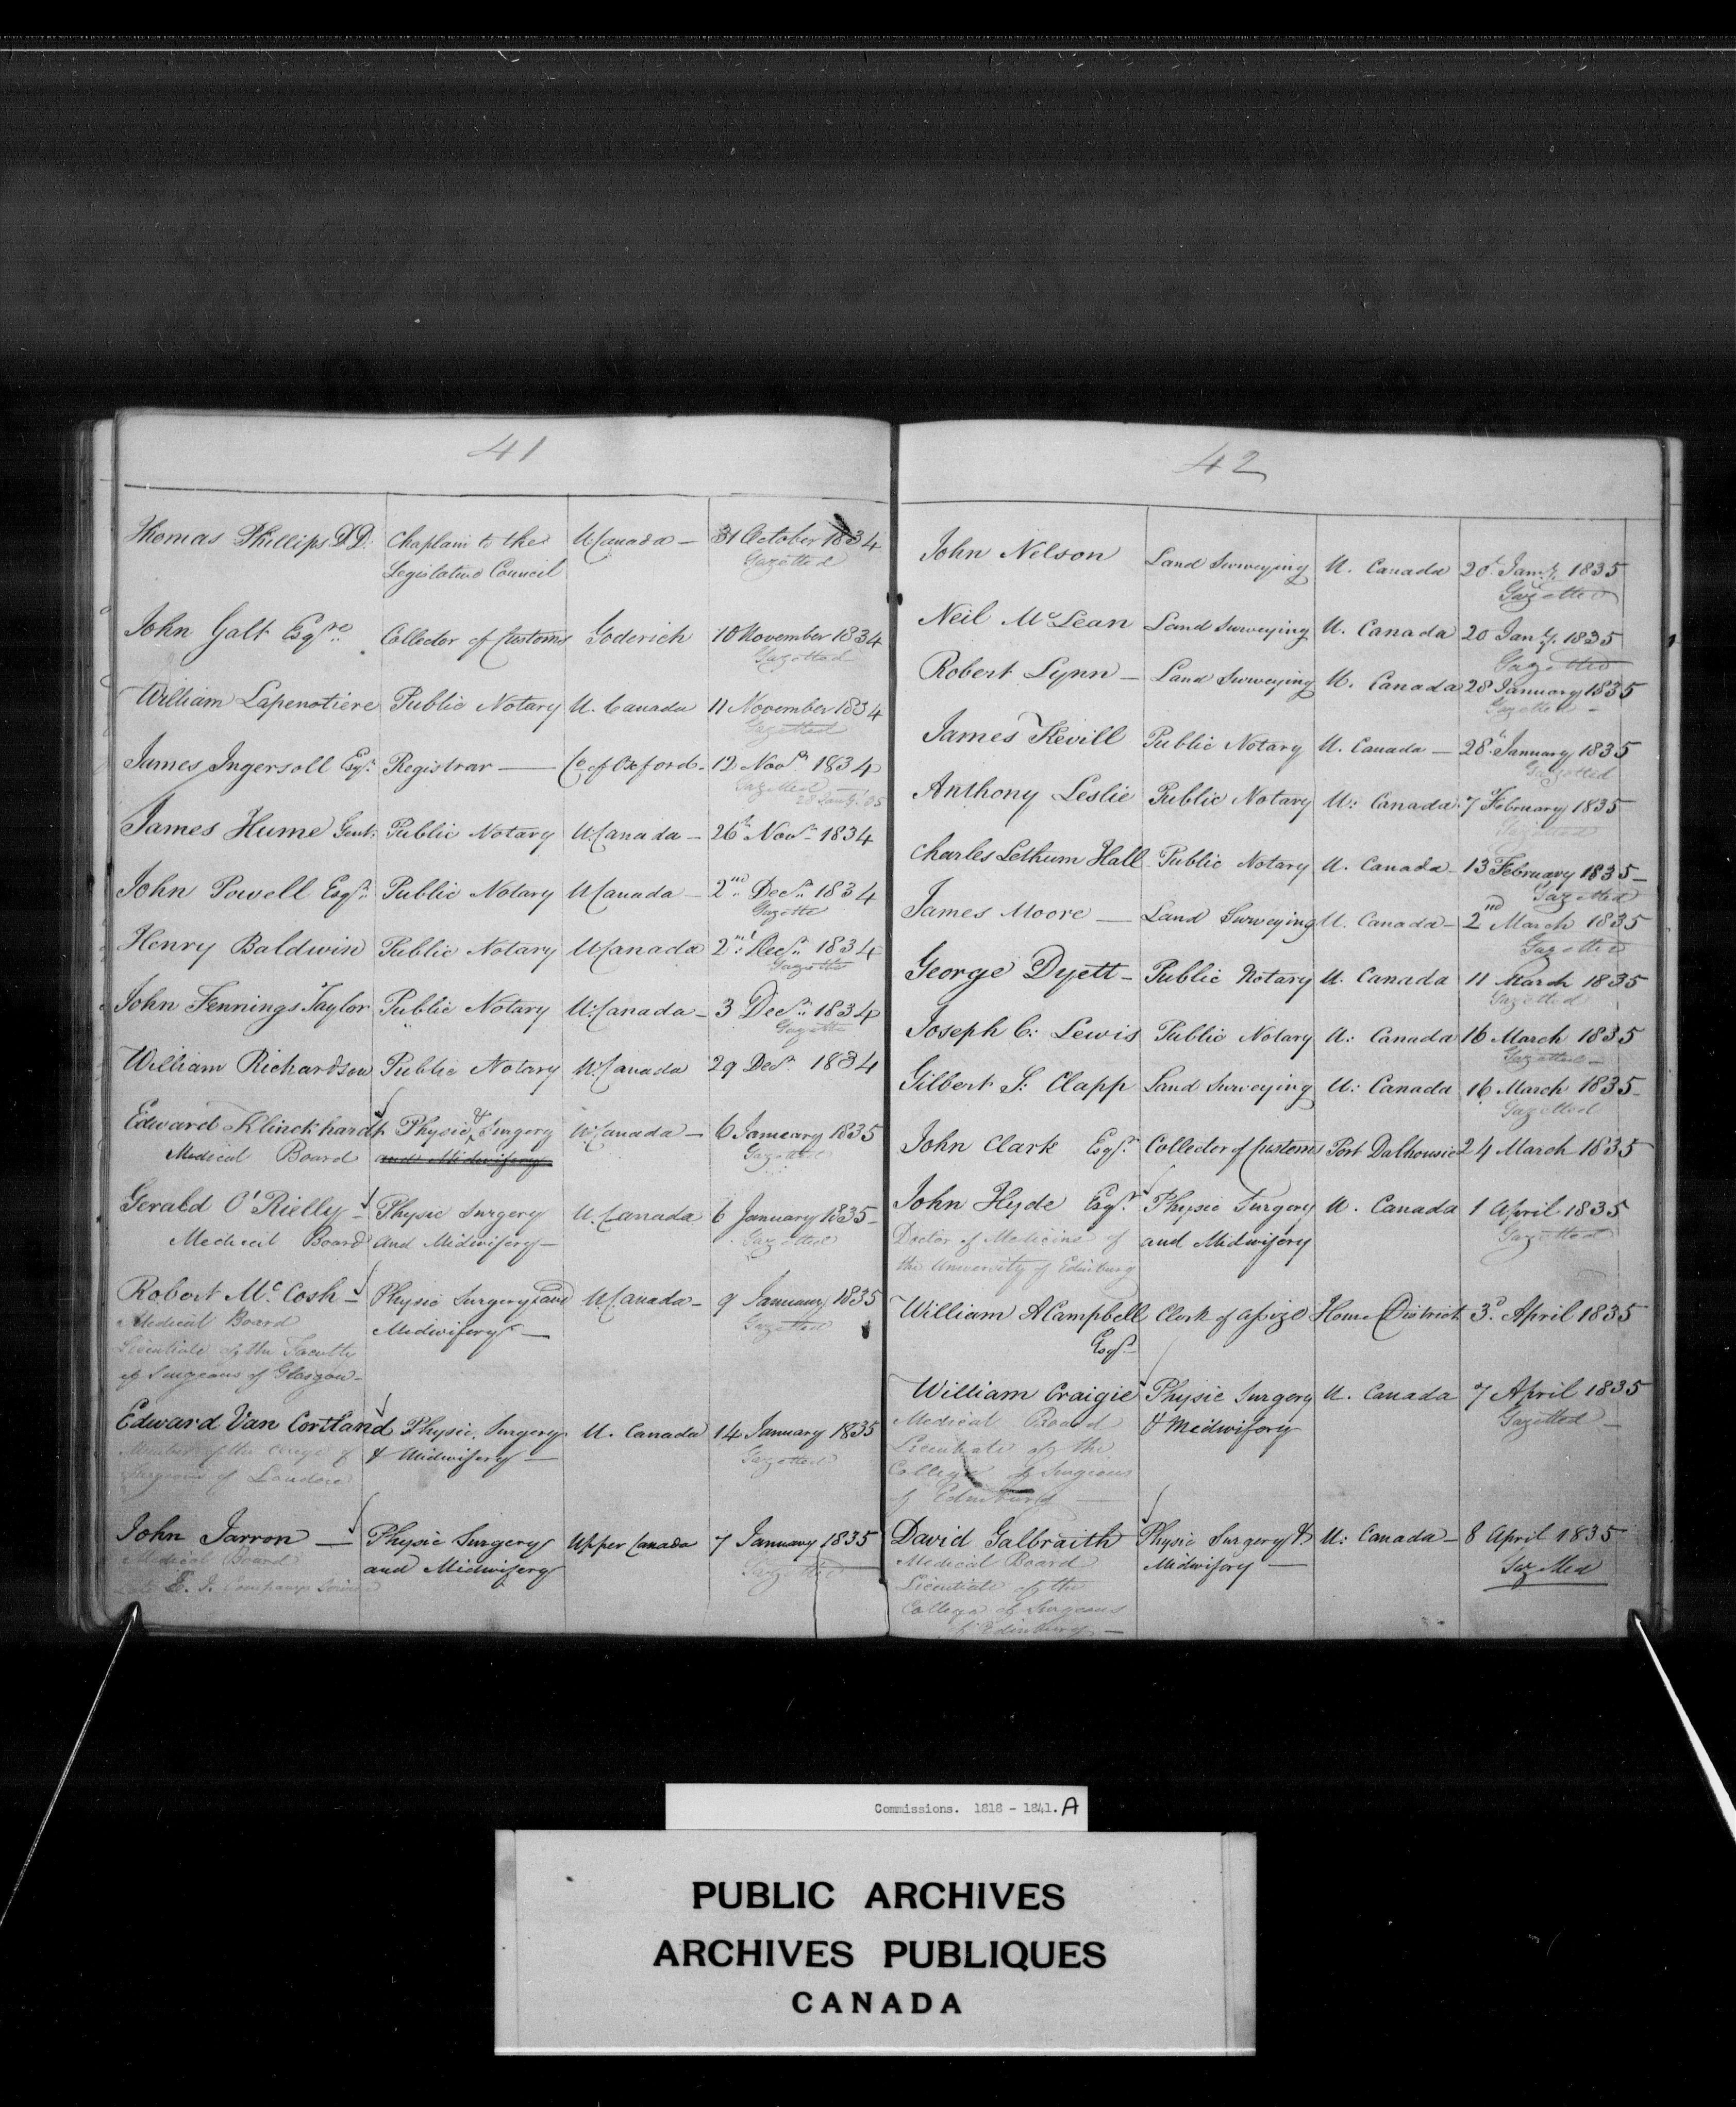 41
Thomas Phillips D.D. Chaplain to the U Canada — 31 October 1834
Legislative Council Gazetted
John Galt Esqre Collector of Customs Goderich 10 November 1834
Gazetted
William Lapenotiere Public Notary U. Canada 11 November 1834
Gazetted
James Ingersoll Esqr. Registrar — Co of Oxford - 12 Novr 1834
Gazetted
28 Jany. 35
James Hume Gent: Public Notary U. Canada - 26th Novr 1834
John Powell Esqr. Public Notary U Canada - 2nd Decr. 1834
Gazette
Henry Baldwin Public Notary U Canada 2nd Decr. 1834
Gazette
John Fennings Taylor Public Notary U. Canada - 3 Decr. 1834
Gazette
William Richardson Public Notary U. Canada 29 Decr 1834
Edward Klinckhardt Physic & Surgery U. Canada - 6 January 1835
Medical Board and Midwifery Gazetted
Gerald O'Rielly - Physic Surgery U. Canada 6 January 1835 -
Medical Board and Midwifery - Gazetted
Robert Mc. Cosh - Physic Surgery and U Canada - 9 January 1835
Medical Board Midwifery - Gazetted
Licentiate of the Faculty
of Surgeons of Glasgow -
Edward Van Cortland Physic, Surgery U. Canada 14 January 1835
Member of the College of & Midwifery - Gazetted
Surgeons of London
John Jarron — Physic Surgery Upper Canada 7 January 1835
Medical Board and Midwifery Gazetted
Late E. I. Companys Service
42
John Nelson Land Surveying U. Canada 20 Jany. 1835
Gazetted
Neil McLean Land Surveying U. Canada 20 Jany. 1835
Gazetted
Robert Lynn - Land Surveying U. Canada 28 January 1835
Gazetted -
James Kevill Public Notary U. Canada - 28 January 1835
Gazetted
Anthony Leslie Public Notary U: Canada 7 February 1835
Gazetted
Charles Lethum Hall Public Notary U. Canada - 13 February 1835 -
Gazetted
James Moore — Land Surveying U. Canada - 2nd March 1835
Gazetted
George Dyett - Public Notary U. Canada 11 March 1835
Gazetted
Joseph C: Lewis Public Notary U: Canada 16 March 1835
Gazetted -
Gilbert S: Clapp Land Surveying U: Canada 16 March 1835 -
Gazetted
John Clark Esqr. Collector of Customs Port Dalhousie 24 March 1835
John Hyde Esqr. Physic Surgery U. Canada 1 April 1835
Doctor of Medicine of and Midwifery Gazetted
the University of Edinburg
William A Campbell Clerk of Assize Home District 3d. April 1835
Esqr
William Craigie Physic Surgery U. Canada 7 April 1835
Medical Board & Midwifery Gazetted -
Licentiate of the
College of Surgeons
of Edinburg —
David Galbraith Physic Surgery & U: Canada - 8 April 1835
Medical Board Midwifery — Gazetted
Licentiate of the
College of Surgeons
of Edinburg -
Commissions. 1818 - 1841. A
PUBLIC ARCHIVES
ARCHIVES PUBLIQUES
CANADA